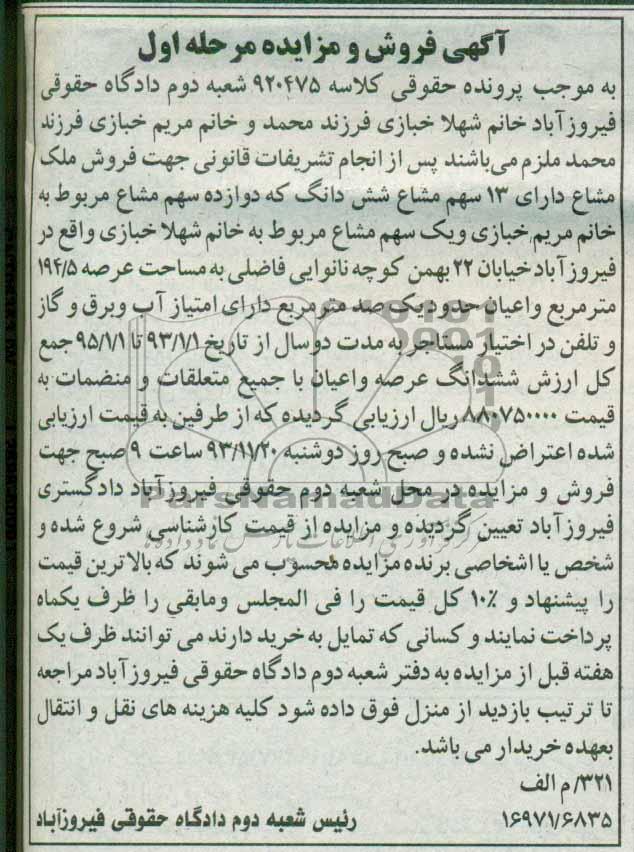 آگهی فروش و مزایده مرحله اول
به موجب پرونده حقوقی کلاسه ۹۲۰۴۷۵ شعبه دوم دادگاه حقوقی
فیروزآباد خانم شهلا خبازی فرزند محمد و خانم مریم خبازی فرزند
محمد ملزم می‌باشند پس از انجام تشریفات قانونی جهت فروش ملک
مشاع دارای ۱۳ سهم مشاع شش دانگ که دوازده سهم مشاع مربوط به
خانم مریم خبازی ویک سهم مشاع مربوط به خانم شهلا خبازی واقع در
فیروزآباد خیابان ۲۲ بهمن کوچه نانوایی فاضلی به مساحت عرصه ۱۹۴/۵
مترمربع واعیان حدود یک صد مترمربع دارای امتیاز آب وبرق و گاز
و تلفن در اختیار مستاجر به مدت دوسال از تاریخ ۹۳/۱/۱ تا ۹۵/۱/۱ جمع
کل ارزش ششدانگ عرصه واعیان با جمیع متعلقات و منضمات به
قیمت ۸۸۰۷۵۰۰۰۰ ریال ارزیابی گردیده که از طرفین به قیمت ارزیابی
شده اعتراض نشده و صبح روز دوشنبه ۹۳/۱۱/۲۰ ساعت ۹ صبح جهت
فروش و مزایده در محل شعبه دوم حقوقی فیروزآباد دادگستری
ParsNamadData
فیروزآباد تعیین گردیده و مزایده از قیمت کارشناسی شروع شده و
شخص یا اشخاصی برنده مزایده محسوب می شوند که بالاترین قیمت
را پیشنهاد و ۱۰٪ کل قیمت را فی المجلس ومابقی را ظرف یکماه
پرداخت نمایند و کسانی که تمایل به خرید دارند می توانند ظرف یک
هفته قبل از مزایده به دفتر شعبه دوم دادگاه حقوقی فیروزآباد مراجعه
تا ترتیب بازدید از منزل فوق داده شود کلیه هزینه های نقل و انتقال
بعهده خریدار می باشد.
۳۲۱/ م الف
۱۶۹۷۱/۶۸۳۵ رئیس شعبه دوم دادگاه حقوقی فیروزآباد